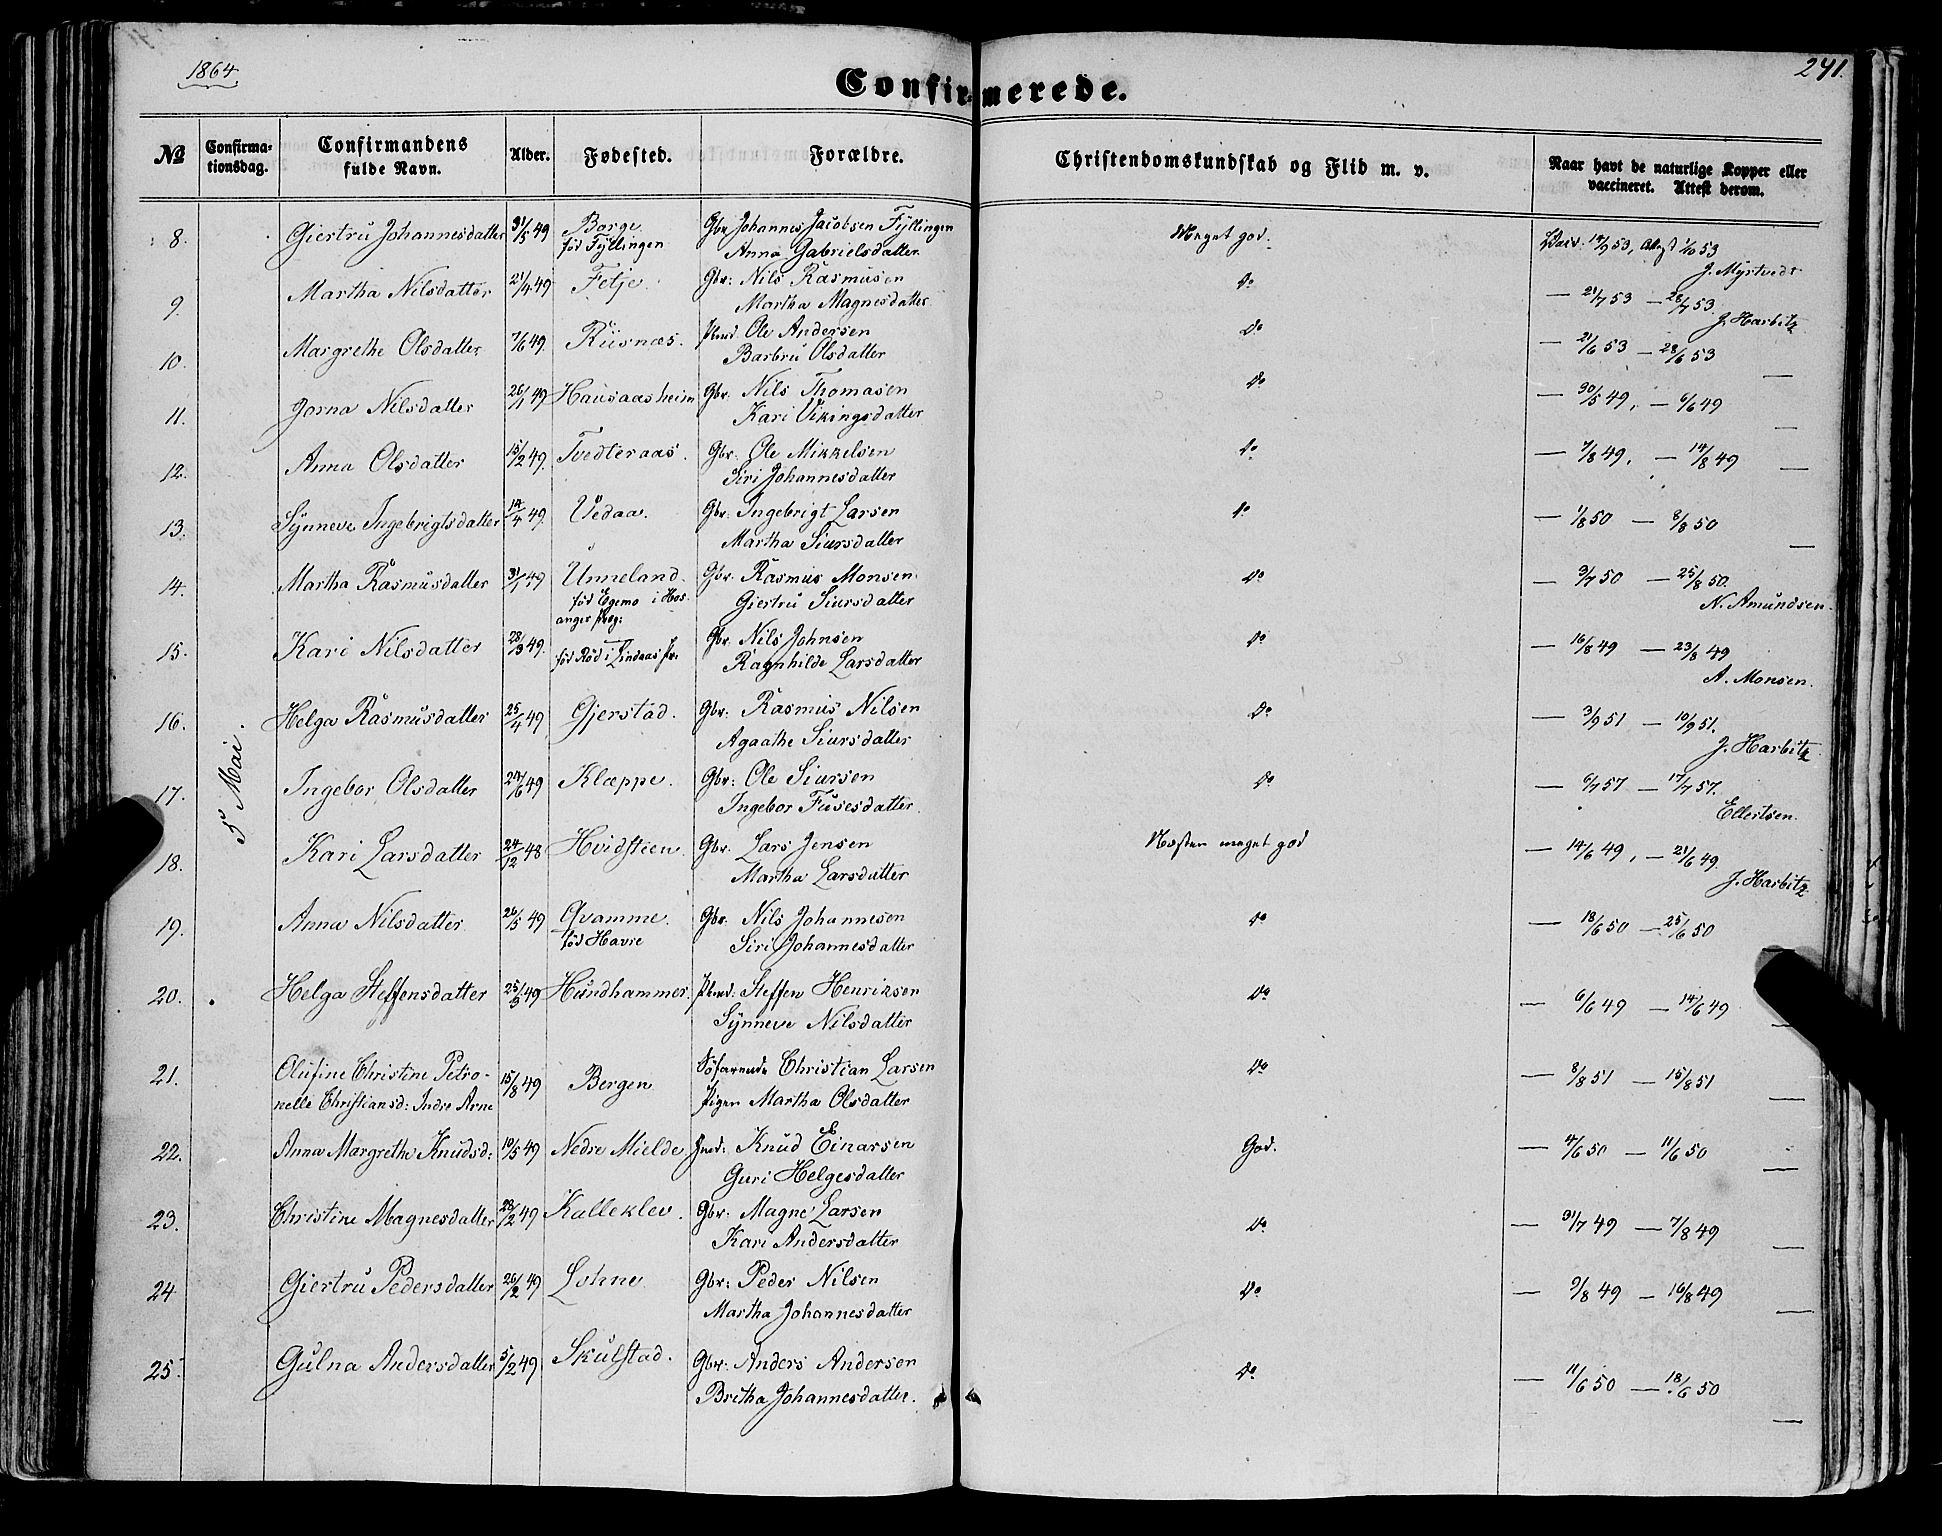 1864
241.
Confirmerede.
No
Confirma-
tionsdag.
Confirmandens
fulde Navn.
Alder.
Fødested.
Forældre.
Christendomskundskab og Flid m. v.
Naar havt de naturlige Kopper eller
vaccineret. Attest derom.
5 Mai.
8. Giertru Johannesdatter 31/5 49 Borge Gbr Johannes Jacobsen Fyllingen Meget god. 14/9 53, Attest 1/10 53
fød Fyllingen Anna Gabrielsdatter J. Myrtvedt
9. Martha Nilsdatter 21/4 49 Fetje Gbr: Nils Rasmusen do — 21/7 53 — 28/7 53.
Martha Magnesdatter J. Harbitz
10. Margrethe Olsdatter 7/6 49. Riisnæs. Pmd. Ole Andersen do — 21/6 53 — 28/6 53
Barbru Olsdatter —
11. Jorna Nilsdatter 26/1 49 Hausaasheim Gbr. Nils Thomasen do — 30/5 49, — 6/6 49
Kari Vikingsdatter —
12. Anna Olsdatter 15/2 49. Tvedteraas. Gbr. Ole Mikkelsen do — 7/8 49, — 14/8 49
Siri Johannesdatter —
13. Synneve Ingebrigtsdatter 14/4 49. Vedaa. Gbr. Ingebrigt Larsen do — 1/8 50 — 8/8 50
Martha Siursdatter —
14. Martha Rasmusdatter 31/1 49 Unneland. Gbr. Rasmus Monsen do — 3/7 50 — 25/8 50.
fød Egemo i Hos- Giertru Siursdatter N. Amundsen.
anger Præg:
15. Kari Nilsdatter 28/3 49. — Gbr. Nils Johnsen do — 16/8 49 — 23/8 49
fød Rød i Lindaas Pr. Ragnhilde Larsdatter A. Monsen.
16. Helga Rasmusdatter 25/4 49 Gjerstad. Gbr. Rasmus Nilsen do — 3/9 51 — 10/9 51.
Agaathe Siursdatter J. Harbitz
17. Ingebor Olsdatter 24/6 49 Klæppe. Gbr: Ole Siursen do — 6/7 57 — 17/7 57.
Ingebor Fusesdatter Ellertsen.
18. Kari Larsdatter 24/12 48 Hvidstien. Gbr. Lars Jensen Næsten meget god — 14/6 49, — 21/6 49.
Martha Larsdatter J. Harbitz
19. Anna Nilsdatter 26/5 49 Qvamme. Gbr. Nils Johannesen do — 18/6 50 — 25/6 50
fød Havre Siri Johannesdatter —
20. Helga Steffensdatter 25/3 49 Hundhammer. Pmd. Steffen Henriksen do — 6/6 49 — 14/6 49
Synneve Nilsdatter —
21. Olufine Christine Petro- 15/8 49 Bergen Søfarende Christian Larsen do — 8/8 51 — 15/8 51
nelle Christiansd: Indre Arne Pigen Martha Olsdatter —
22. Anna Margrethe Knudsd: 10/5 49 Nedre Mielde Pmd: Knud Einarsen God. — 4/6 50 — 11/6 50
Guri Helgesdatter —
23. Christine Magnesdatter 28/2 49 Kalleklev. Gbr: Magne Larsen do — 31/7 49 — 7/8 49
Kari Andersdatter —
24 Giertru Pedersdatter 26/2 49 Lohne Gbr: Peder Nilsen do — 9/8 49 — 16/8 49
Martha Johannesdatter —
25. Gulna Andersdatter 5/2 49 Skulstad. Gbr: Anders Andersen do — 11/6 50 — 18/6 50
Britha Johannesdatter. —